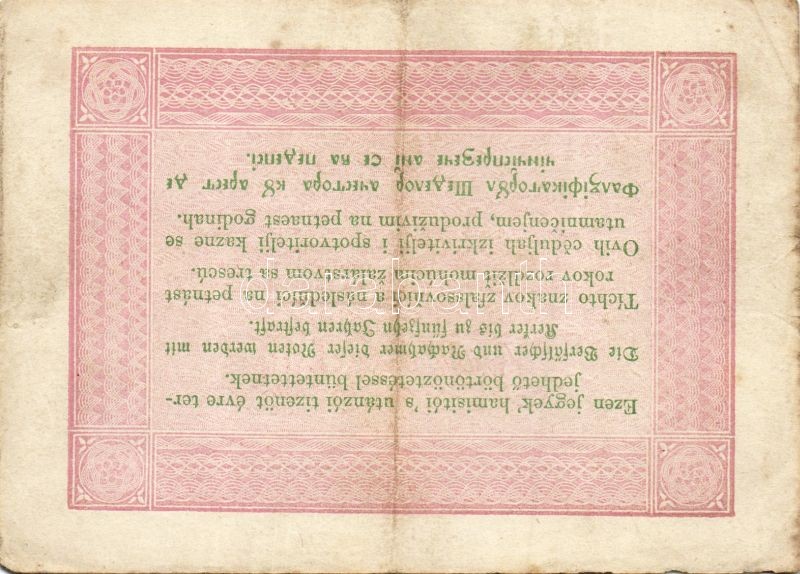 Ezen jegyek' hamisitói 's utánzói tizenöt évre ter-
jedhető börtönöztetéssel büntettetnek.
Die Verfälscher und Nachahmer dieser Noten werden mit
Kerker bis zu fünfzehn Jahren bestraft.
Tichto znakov zfalssovňíci a násladňíci na petnást
rokov rozdlžiť mohúcim žalárstvom sa trescú.
Ovih cěduljah izkrivitelji i spotvoritelji kazne se
utamničenjem, produživim na petnaest godinah.
Фалзіфікаторꙋл Шеделор ачестора кꙋ арест де
чінчіспрезече ані се ва педепсі.
darabanth